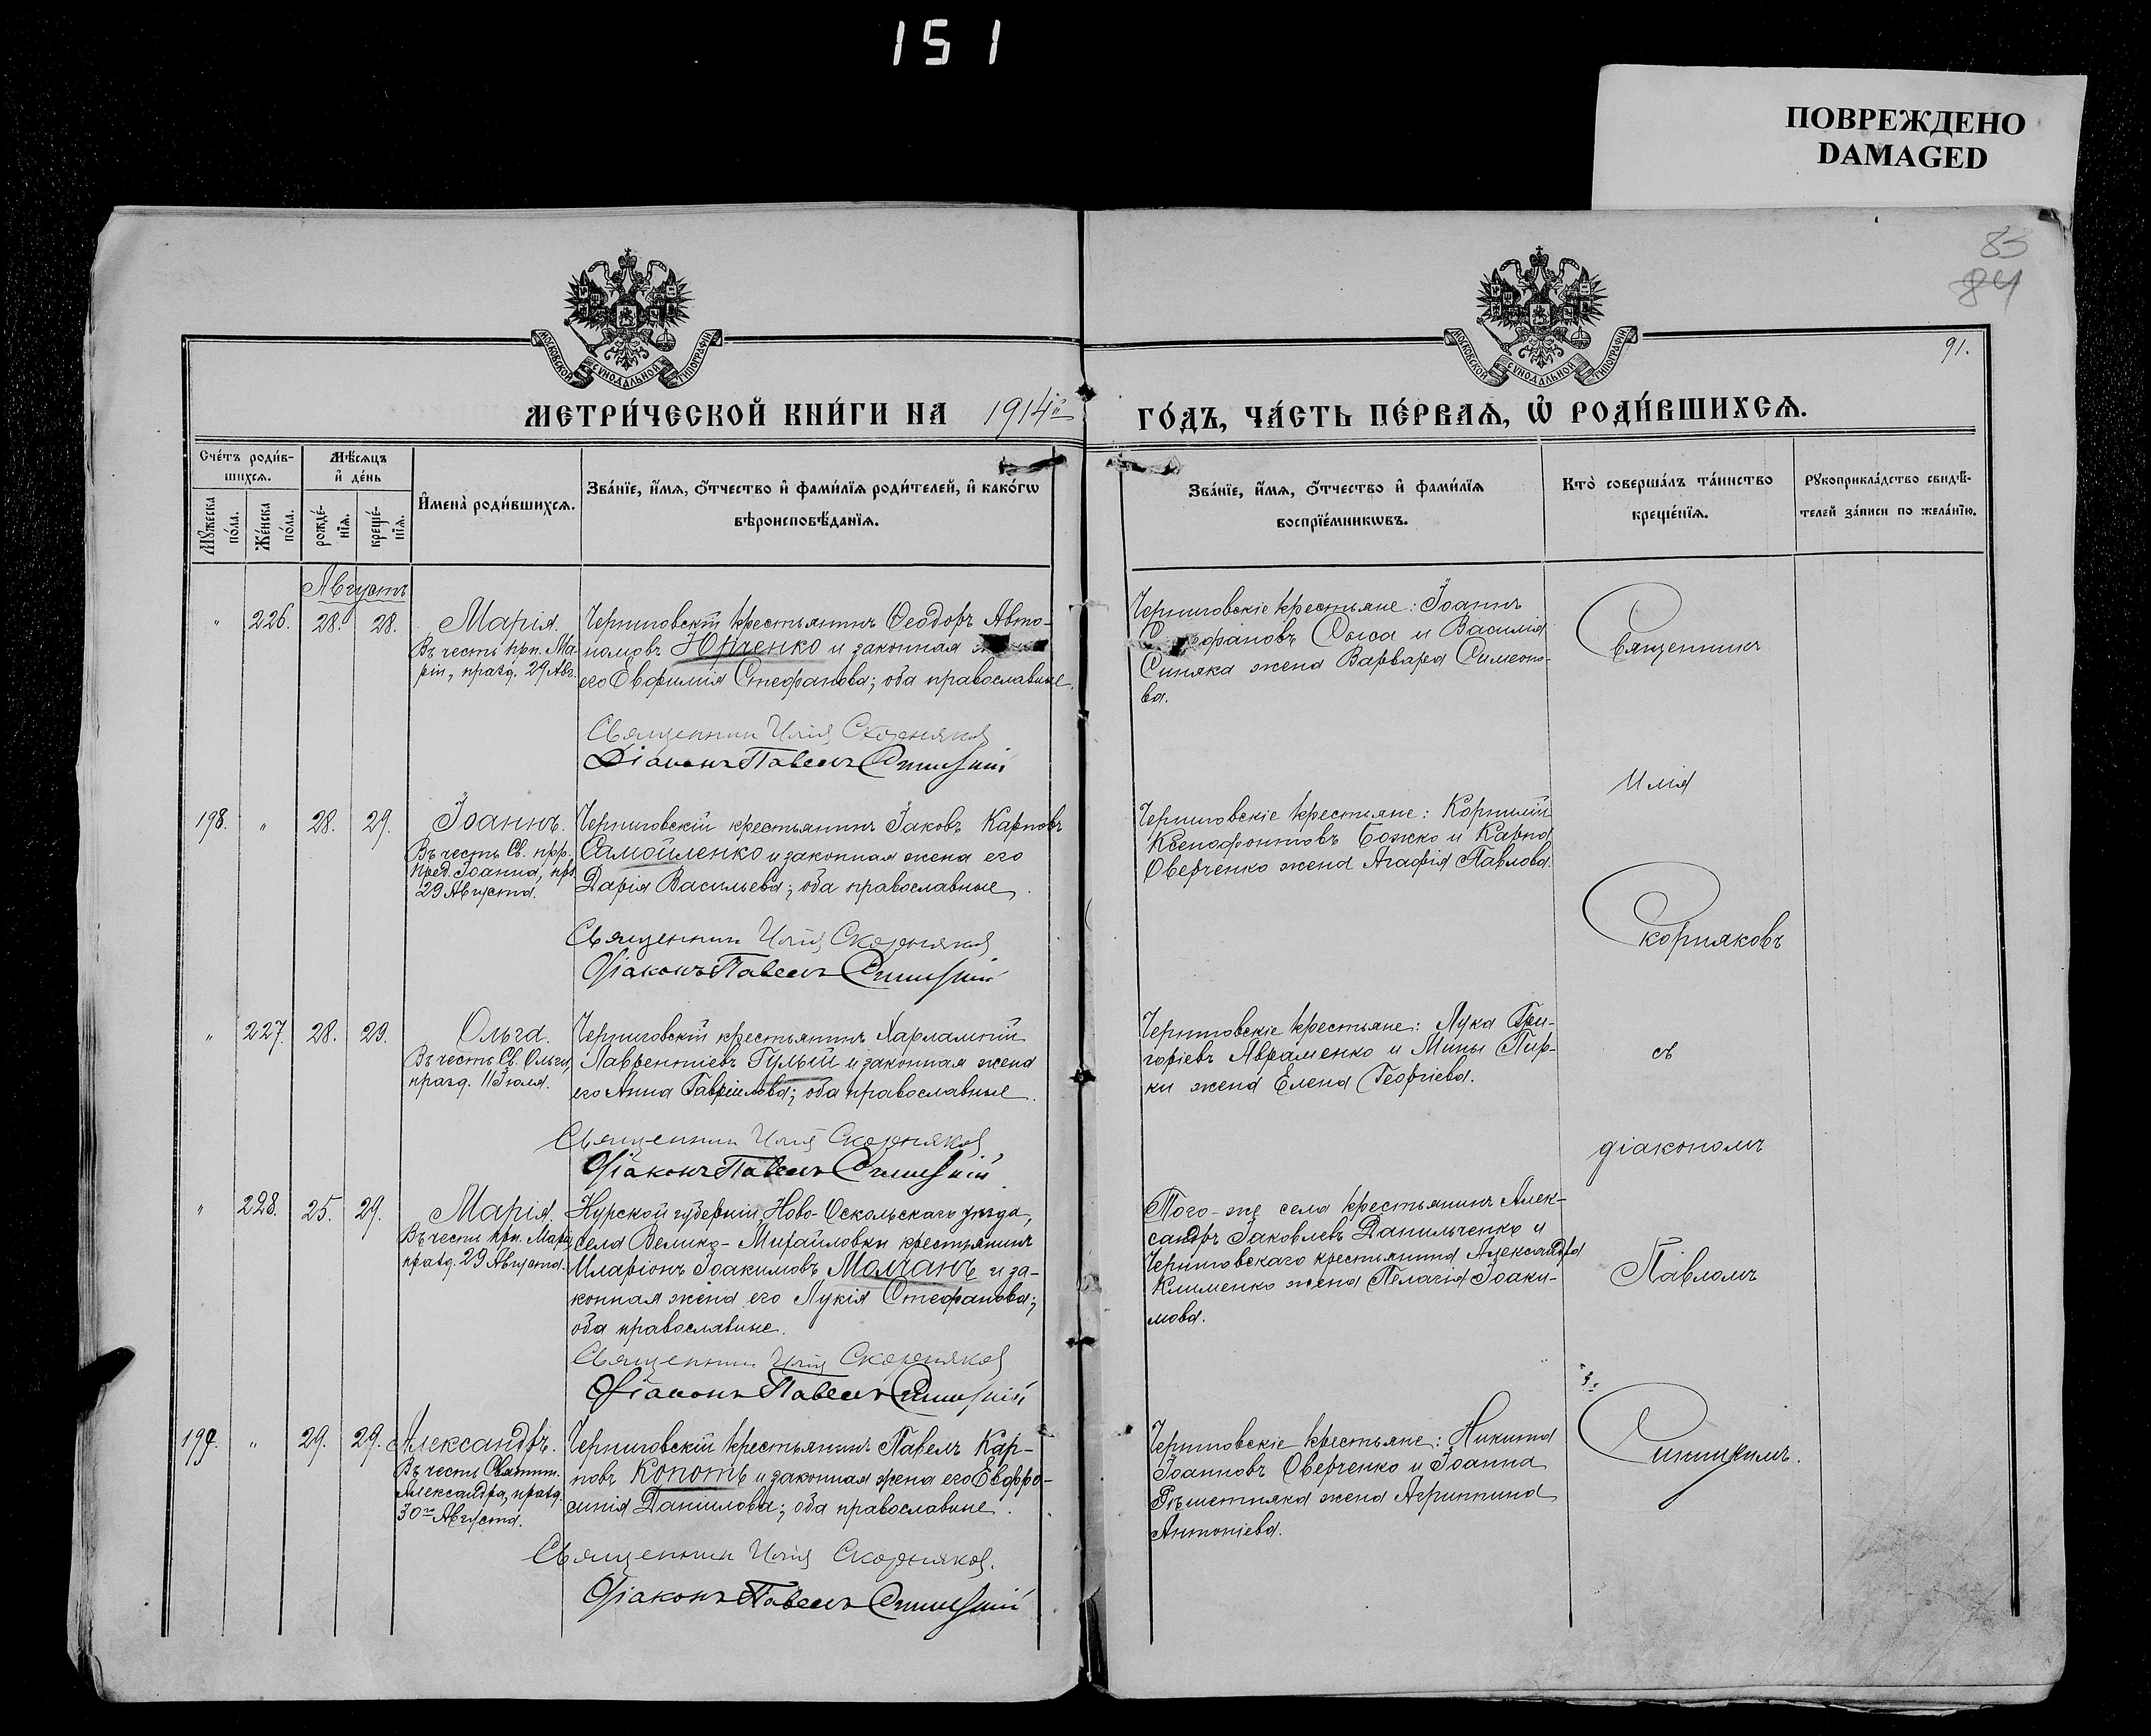 151
ПОВРЕЖДЕНО
DAMAGED
85
84
91.
МОСКОВСКОЙ СѴНОДАЛЬНОЙ ТИПОГРАФІИ
МОСКОВСКОЙ СѴНОДАЛЬНОЙ ТИПОГРАФІИ
МЕТРИ́ЧЕСКОЙ КНИ́ГИ НА 1914й
ГО́ДЪ, ЧА́СТЬ ПЕ́РВАѦ, Ѡ҆ РОДИ́ВШИХСѦ.
Сче́тъ роди́в-
шихсѧ.
Мꙋ́жеска по́ла.
Же́нска по́ла.
Мѣ́сѧцъ
и҆ де́нь
рожде́-
нїѧ.
креще́-
нїѧ.
И҆мена̀ роди́вшихсѧ.
Зва́нїе, и҆́мѧ, ѻ҆́тчество и҆ фами́лїѧ роди́телей, и҆ како́гѡ
вѣроисповѣ́данїѧ.
Зва́нїе, и҆́мѧ, ѻ҆́тчество и҆ фами́лїѧ
воспрїе́мникѡвъ.
Кто̀ соверша́лъ та́инство
креще́нїѧ.
Рꙋкоприкла́дство свидѣ́-
телей за́писи по жела́нїю.
Августъ
" 226. 28. 28. Марія.
Въ честь прп. Ма-
ріи, празд. 29 Авг.
Черниговскій крестьянинъ Ѳеодоръ Авто-
номовъ Юрченко и законная
его Евфимія Стефанова; оба православные.
Священник Илія Скорняков
Діаконъ Павелъ Синицкій
Черниговскіе крестьяне: Іоаннъ
Василія
Синяка жена Варвара Симеоно-
ва.
198. " 28. 29. Іоаннъ.
Въ честь Св. прр.
Пред. Іоанна, пр.
29 Августа.
Черниговскій крестьянинъ Іаковъ Карповъ
Самойленко и законная жена его
Дарія Васильева; оба православные.
Священник Илія Скорняков
Діаконъ Павелъ Синицкій
Черниговскіе крестьяне: Корнилій
Ксенофонтовъ Божко и Карпа
Оверченко жена Агафія Павлова.
" 227. 28. 29. Ольга.
Въ честь Св. Ольги,
празд. 11 Іюля.
Черниговскій крестьянинъ Харлампій
Лаврентіевъ Гулый и законная жена
его Анна Гавріилова; оба православные.
Священник Илія Скорняков
Діаконъ Павелъ Синицкій
Черниговскіе крестьяне: Лука Гри-
горіевъ Авраменко и Мины Пир-
ки жена Елена Георгіева.
" 228. 25. 29. Марія.
Въ честь прп. Маріи,
празд. 29 Августа.
Курской губерніи, Ново-Оскольскаго уѣзда,
села Велико-Михайловки крестьянинъ
Иларіонъ Іоакимовъ Молчанъ и за-
конная жена его Лукія Стефанова;
оба православные.
Священник Илія Скорняков
Діаконъ Павелъ Синицкій
Того-же села крестьянинъ Алек-
сандръ Іаковлевъ Данильченко и
Черниговскаго крестьянина Александра
Клименко жена Пелагія Іоаки-
мова.
199. " 29. 29. Александръ.
Въ честь Святит.
Александра, празд.
30го Августа.
Черниговскій крестьянинъ Павелъ Кар-
повъ Копоть и законная жена его Евфро-
синія Даніилова; оба православные.
Священник Илія Скорняков.
Діаконъ Павелъ Синицкій
Черниговскіе крестьяне: Никита
Іоанновъ Оверченко и Іоанна
Рѣшетняка жена Агриппина
Антоніева.
Священникъ
Илія
Скорняковъ
съ
діакономъ
Павломъ
Синицкимъ.